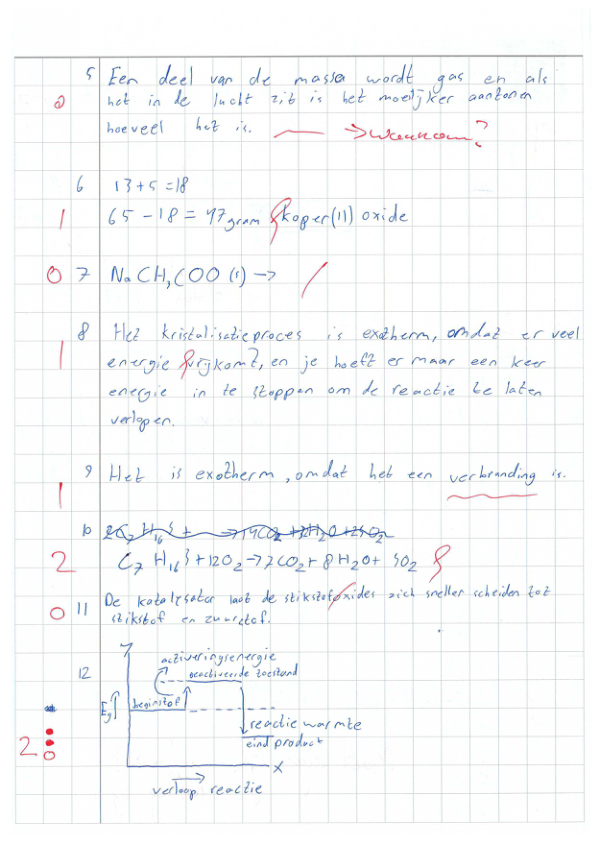 5 Een deel van de massa wordt gas en als
0 het in de lucht zit is het moeijker aantonen
hoeveel het is. → waarom?
6 13 + 5 = 18
1 65 - 18 = 47 gram koper(II) oxide
0 7 NaCH3COO (s) →
8 Het kristalisatieproces is exotherm, omdat er veel
1 energie vrijkomt, en je hoeft er maar een keer
energie in te stoppen om de reactie te laten
verlopen.
9 Het is exotherm, omdat het een verbranding is.
1
10
2 C7 H16 S + 12O2 → 7CO2 + 8H2O + SO2
0 11 De katalysator laat de stikstofoxides zich sneller scheiden tot
stikstof en zuurstof.
12 y
activeringsenergie
geactiveerde toestand
beginstof
E
reactie warmte
eind product
2
x
verloop reactie